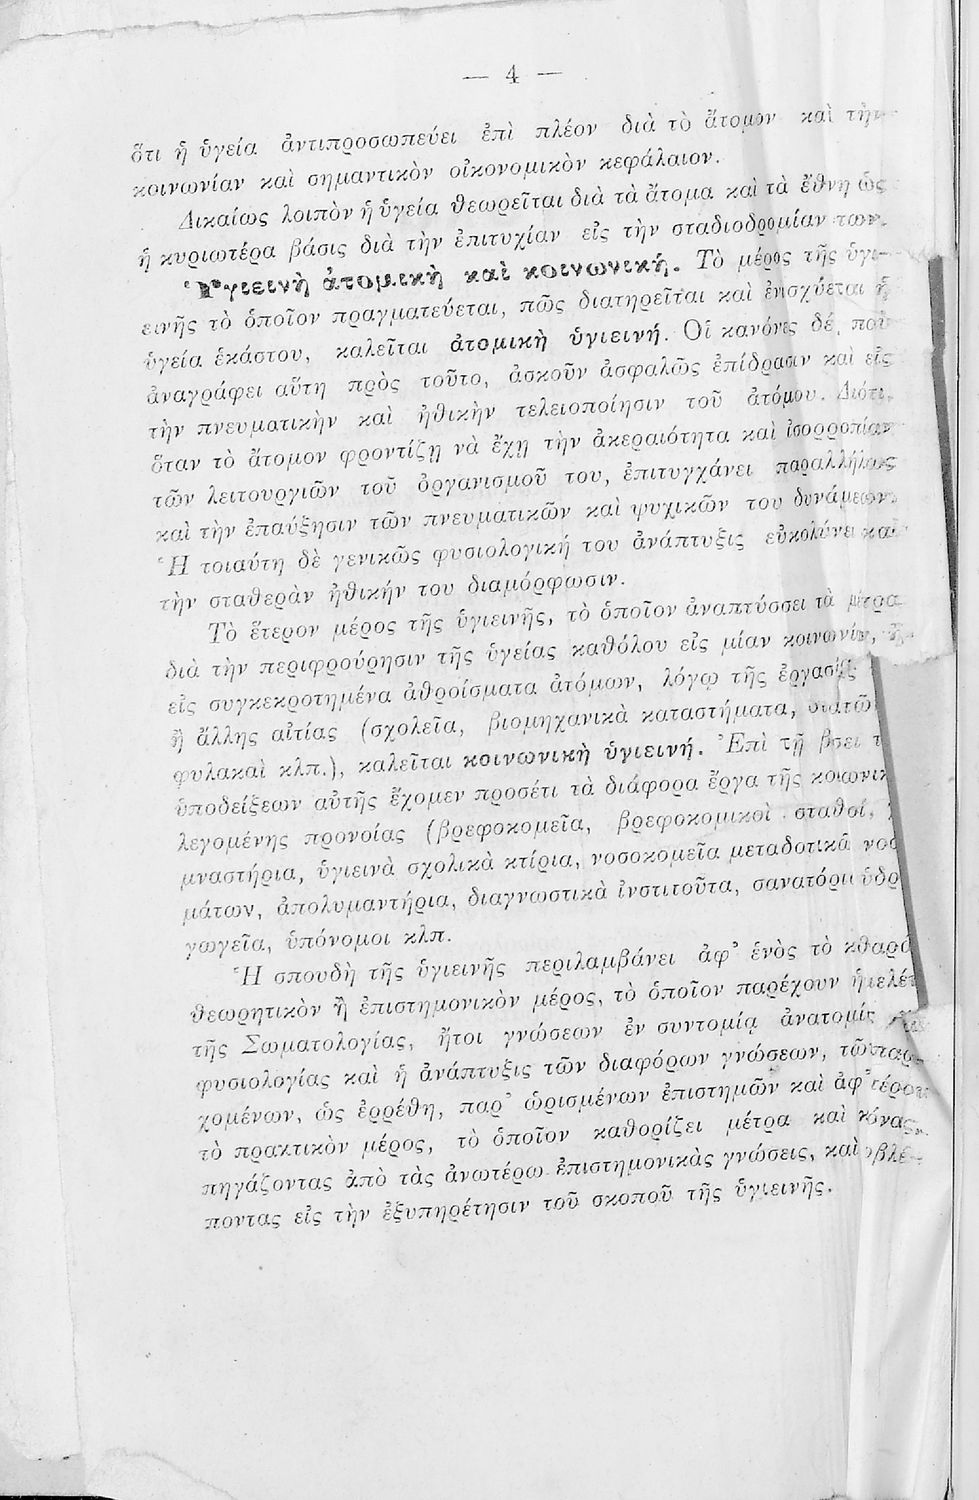 — 4 —
ὅτι ἡ ὑγεία ἀντιπροσωπεύει ἐπὶ πλέον διὰ τὸ ἄτομον καὶ τὴν
κοινωνίαν καὶ σημαντικὸν οἰκονομικὸν κεφάλαιον.
Δικαίως λοιπὸν ἡ ὑγεία θεωρεῖται διὰ τὰ ἄτομα καὶ τὰ ἔθνη ὡς
ἡ κυριωτέρα βάσις διὰ τὴν ἐπιτυχίαν εἰς τὴν σταδιοδρομίαν των.
Ὑγιεινὴ ἀτομικὴ καὶ κοινωνική. Τὸ μέρος τῆς ὑγι-
εινῆς τὸ ὁποῖον πραγματεύεται, πῶς διατηρεῖται καὶ ἐνισχύεται ἡ
ὑγεία ἑκάστου, καλεῖται ἀτομικὴ ὑγιεινή. Οἱ κανόνες δέ, ποὺ
ἀναγράφει αὕτη πρὸς τοῦτο, ἀσκοῦν ἀσφαλῶς ἐπίδρασιν καὶ εἰς
τὴν πνευματικὴν καὶ ἠθικὴν τελειοποίησιν τοῦ ἀτόμου. Διότι,
ὅταν τὸ ἄτομον φροντίζῃ νὰ ἔχῃ τὴν ἀκεραιότητα καὶ ἰσορροπίαν
τῶν λειτουργιῶν τοῦ ὀργανισμοῦ του, ἐπιτυγχάνει παραλλήλως
καὶ τὴν ἐπαύξησιν τῶν πνευματικῶν καὶ ψυχικῶν του δυνάμεων.
Ἡ τοιαύτη δὲ γενικῶς φυσιολογική του ἀνάπτυξις εὐκολύνει καὶ
τὴν σταθερὰν ἠθικήν του διαμόρφωσιν.
Τὸ ἕτερον μέρος τῆς ὑγιεινῆς, τὸ ὁποῖον ἀναπτύσσει τὰ μέτρα
διὰ τὴν περιφρούρησιν τῆς ὑγείας καθόλου εἰς μίαν κοινωνίαν, ἢ
εἰς συγκεκροτημένα ἀθροίσματα ἀτόμων, λόγῳ τῆς ἐργασίας
ἢ ἄλλης αἰτίας (σχολεῖα, βιομηχανικὰ καταστήματα,
φυλακαὶ κλπ.), καλεῖται κοινωνικὴ ὑγιεινή. Ἐπὶ τῇ βάσει
ὑποδείξεων αὐτῆς ἔχομεν προσέτι τὰ διάφορα ἔργα τῆς
λεγομένης προνοίας (βρεφοκομεῖα, βρεφοκομικοὶ σταθμοί,
μναστήρια, ὑγιεινὰ σχολικὰ κτίρια, νοσοκομεῖα μεταδοτικῶν
μάτων, ἀπολυμαντήρια, διαγνωστικὰ ἰνστιτοῦτα, σανατόρια
γωγεῖα, ὑπόνομοι κλπ.
Ἡ σπουδὴ τῆς ὑγιεινῆς περιλαμβάνει ἀφ' ἑνὸς τὸ
θεωρητικὸν ἢ ἐπιστημονικὸν μέρος, τὸ ὁποῖον παρέχουν
τῆς Σωματολογίας, ἤτοι γνώσεων ἐν συντομίᾳ ἀνατομίας
φυσιολογίας καὶ ἡ ἀνάπτυξις τῶν διαφόρων γνώσεων, τῶν
χομένων, ὡς ἐρρέθη, παρ' ὡρισμένων ἐπιστημῶν καὶ ἀφ'
τὸ πρακτικὸν μέρος, τὸ ὁποῖον καθορίζει μέτρα καὶ
πηγάζοντας ἀπὸ τὰς ἀνωτέρω ἐπιστημονικὰς γνώσεις, καὶ
ποντας εἰς τὴν ἐξυπηρέτησιν τοῦ σκοποῦ τῆς ὑγιεινῆς.